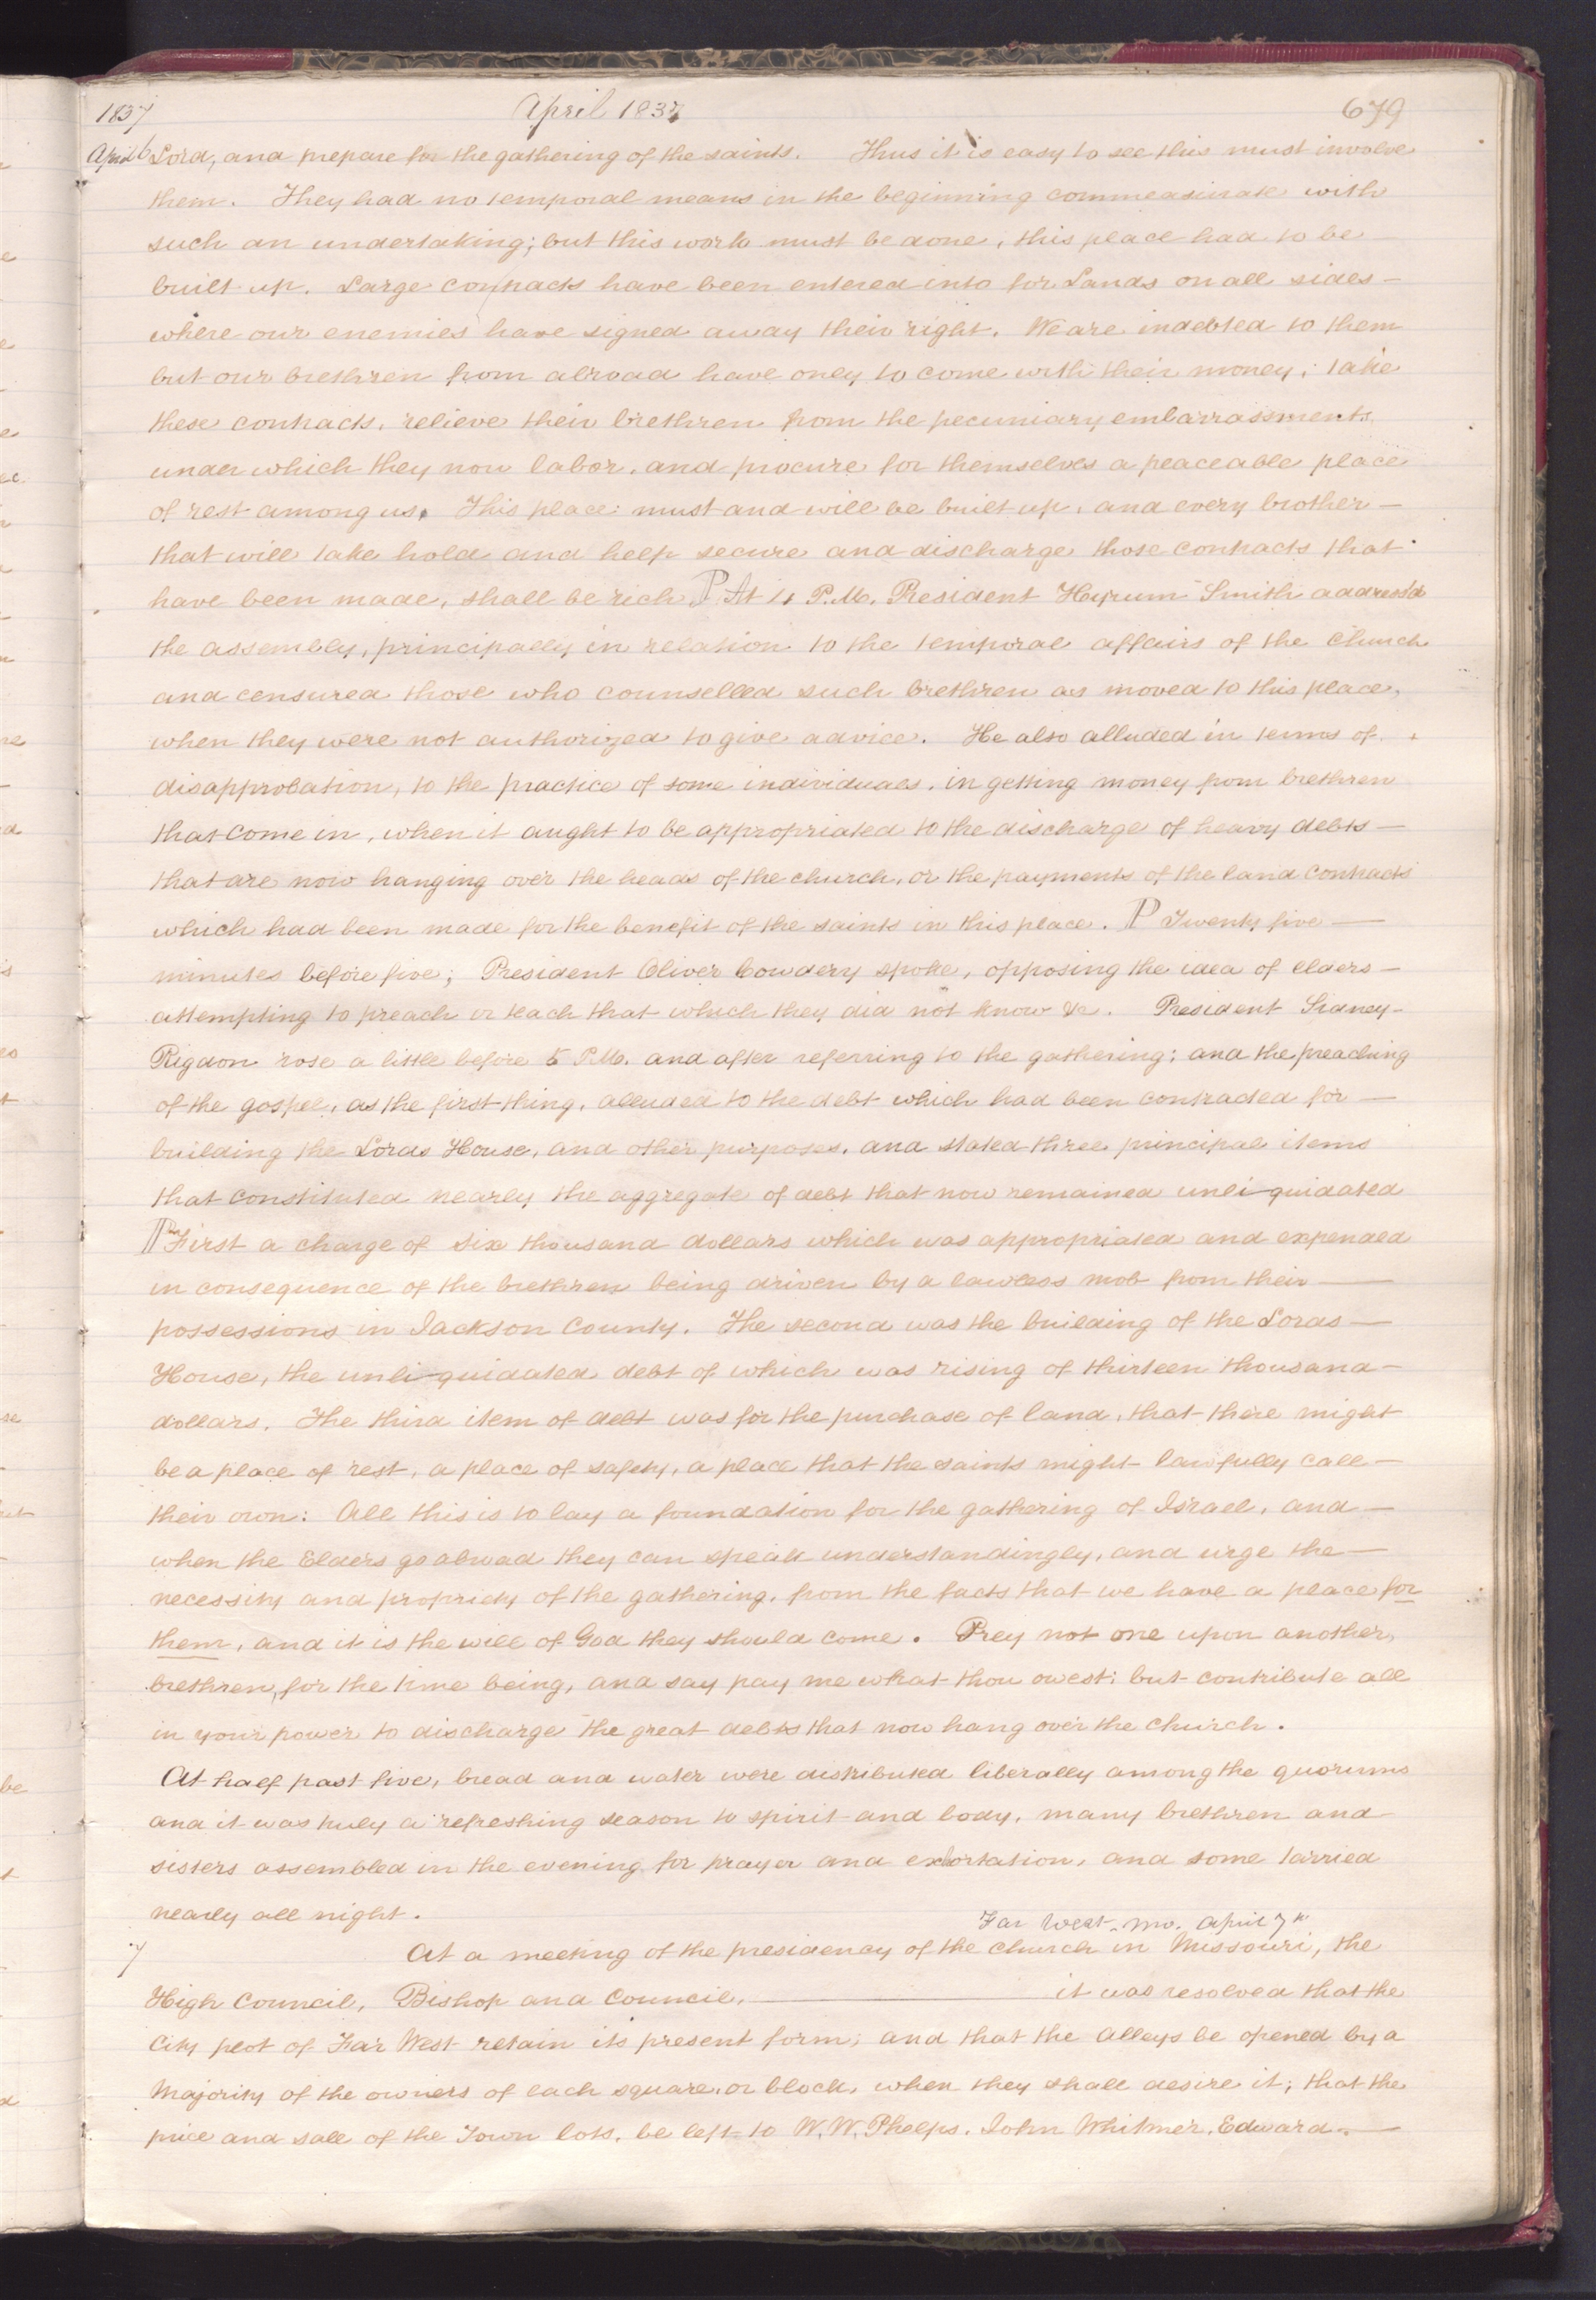 1837 April 1837 679
April 6 Lord, and prepare for the gathering of the saints. Thus it is easy to see this must involve
them. They had no temporal means in the beginning commeasurate with
such an undertaking; but this work must be done, this place had to be
built up. Large contracts have been entered into for Lands on all sides—
where our enemies have signed away their right. We are indebted to them
but our brethren from abroad have only to come with their money; take
these contracts, relieve their brethren from the pecuniary embarrassments
under which they now labor, and procure for themselves a peaceable place
of rest among us. This place must and will be built up, and every brother—
that will take hold and help secure and discharge those contracts that
have been made, shall be rich. P At 4 P.M. President Hyrum Smith address'd
the assembly, principally in relation to the temporal affairs of the church
and censured those who counselled such brethren as moved to this place,
when they were not authorized to give advice. He also alluded in terms of
disapprobation, to the practice of some individuals, in getting money from brethren
that come in, when it aught to be appropriated to the discharge of heavy debts—
that are now hanging over the heads of the church, or the payments of the land contracts
which had been made for the benefit of the saints in this place. P Twenty five—
minutes before five; President Oliver Cowdery spoke, opposing the idea of elders—
attempting to preach or teach that which they did not know &c. President Sidney—
Rigdon rose a little before 5 P.M. and after referring to the gathering; and the preaching
of the gospel, as the first thing, alluded to the debt which had been contracted for—
building the Lords House, and other purposes, and stated three principal items
that constituted nearly the aggregate of debt that now remained unli-quidated
P First a charge of six thousand dollars which was appropriated and expended
in consequence of the brethren being driven by a lawless mob from their—
possessions in Jackson County. The second was the building of the Lords—
House, the unli-quidated debt of which was rising of thirteen thousand—
dollars. The third item of debt was for the purchase of land, that there might
be a place of rest, a place of safety, a place that the saints might lawfully call—
their own: All this is to lay a foundation for the gathering of Israel, and—
when the Elders go abroad they can speak understandingly, and urge the—
necessity and propriety of the gathering, from the facts that we have a place for
them, and it is the will of God they should come. Prey not one upon another,
brethren, for the time being, and say pay me what thou owest; but contribute all
in your power to discharge the great debts that now hang over the church.
At half past five, bread and water were distributed liberally among the quorums
and it was truly a refreshing season to spirit and body, many brethren and
sisters assembled in the evening for prayer and exhortation, and some tarried
nearly all night.
Far West. Mo. April 7th
7 At a meeting of the presidency of the church in Missouri, the
High Council, Bishop and Council,— it was resolved that the
City plot of Far West retain its present form; and that the alleys be opened by a
Majority of the owners of each square, or block, when they shall desire it; that the
price and sale of the Town lots, be left to W. W. Phelps. John Whitmer, Edward—